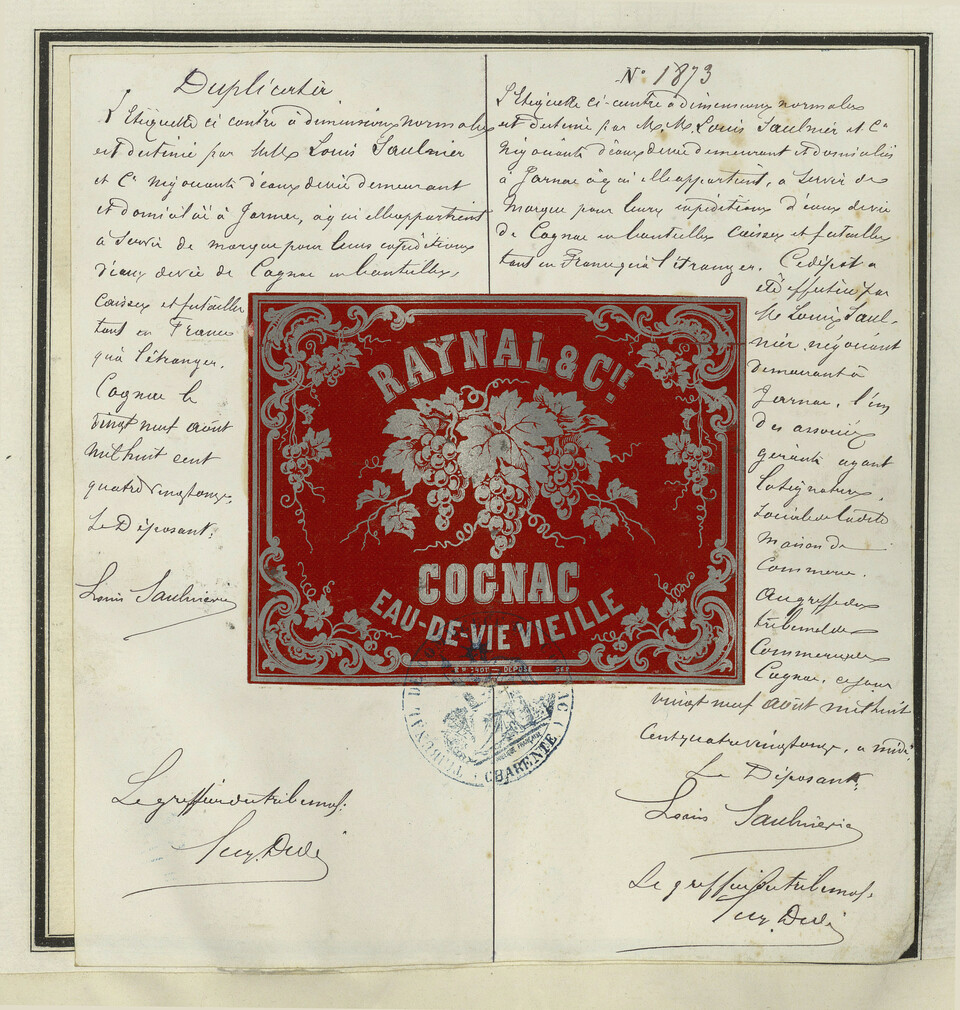 Duplicata
L'Etiquette ci contre à dimensions normales
est destinée par MM Louis Saulnier
et Cie négociants d'eaux de vie demeurant
et domiciliés à Jarnac, à qui elle appartient
a servir de marque pour leurs expéditions
d'eaux de vie de Cognac en bouteilles,
caisses et futailles
tant en France
qu'à l'étranger.
Cognac le
vingt neuf août
mil huit cent
quatre vingt onze.
Le Déposant:
Louis Saulnier
Le greffier du tribunal:
N° 1873
L'Etiquette ci-contre à dimensions normales
est destinée par M. M. Louis Saulnier et Cie
négociants d'eaux de vie demeurant et domiciliés
à Jarnac à qui elle appartient, a servir de
marque pour leurs expéditions d'eaux de vie
de Cognac en bouteilles caisses et futailles
tant en France qu'à l'étranger. Ce dépôt a
été effectué par
Mr Louis Saul-
nier, négociant
demeurant à
Jarnac, l'un
des associés
gérants ayant
la signature
sociale de la dite
maison de
Commerce.
Au greffe du
tribunal de
Commerce de
Cognac, ce jour
vingt neuf août mil huit
cent quatre vingt onze, a midi.
Le Déposant:
Louis Saulnier
Le greffier du tribunal:
RAYNAL & CIE
COGNAC
EAU-DE-VIE VIEILLE
DÉPOSÉ
TRIBUNAL DE
CHARENTE